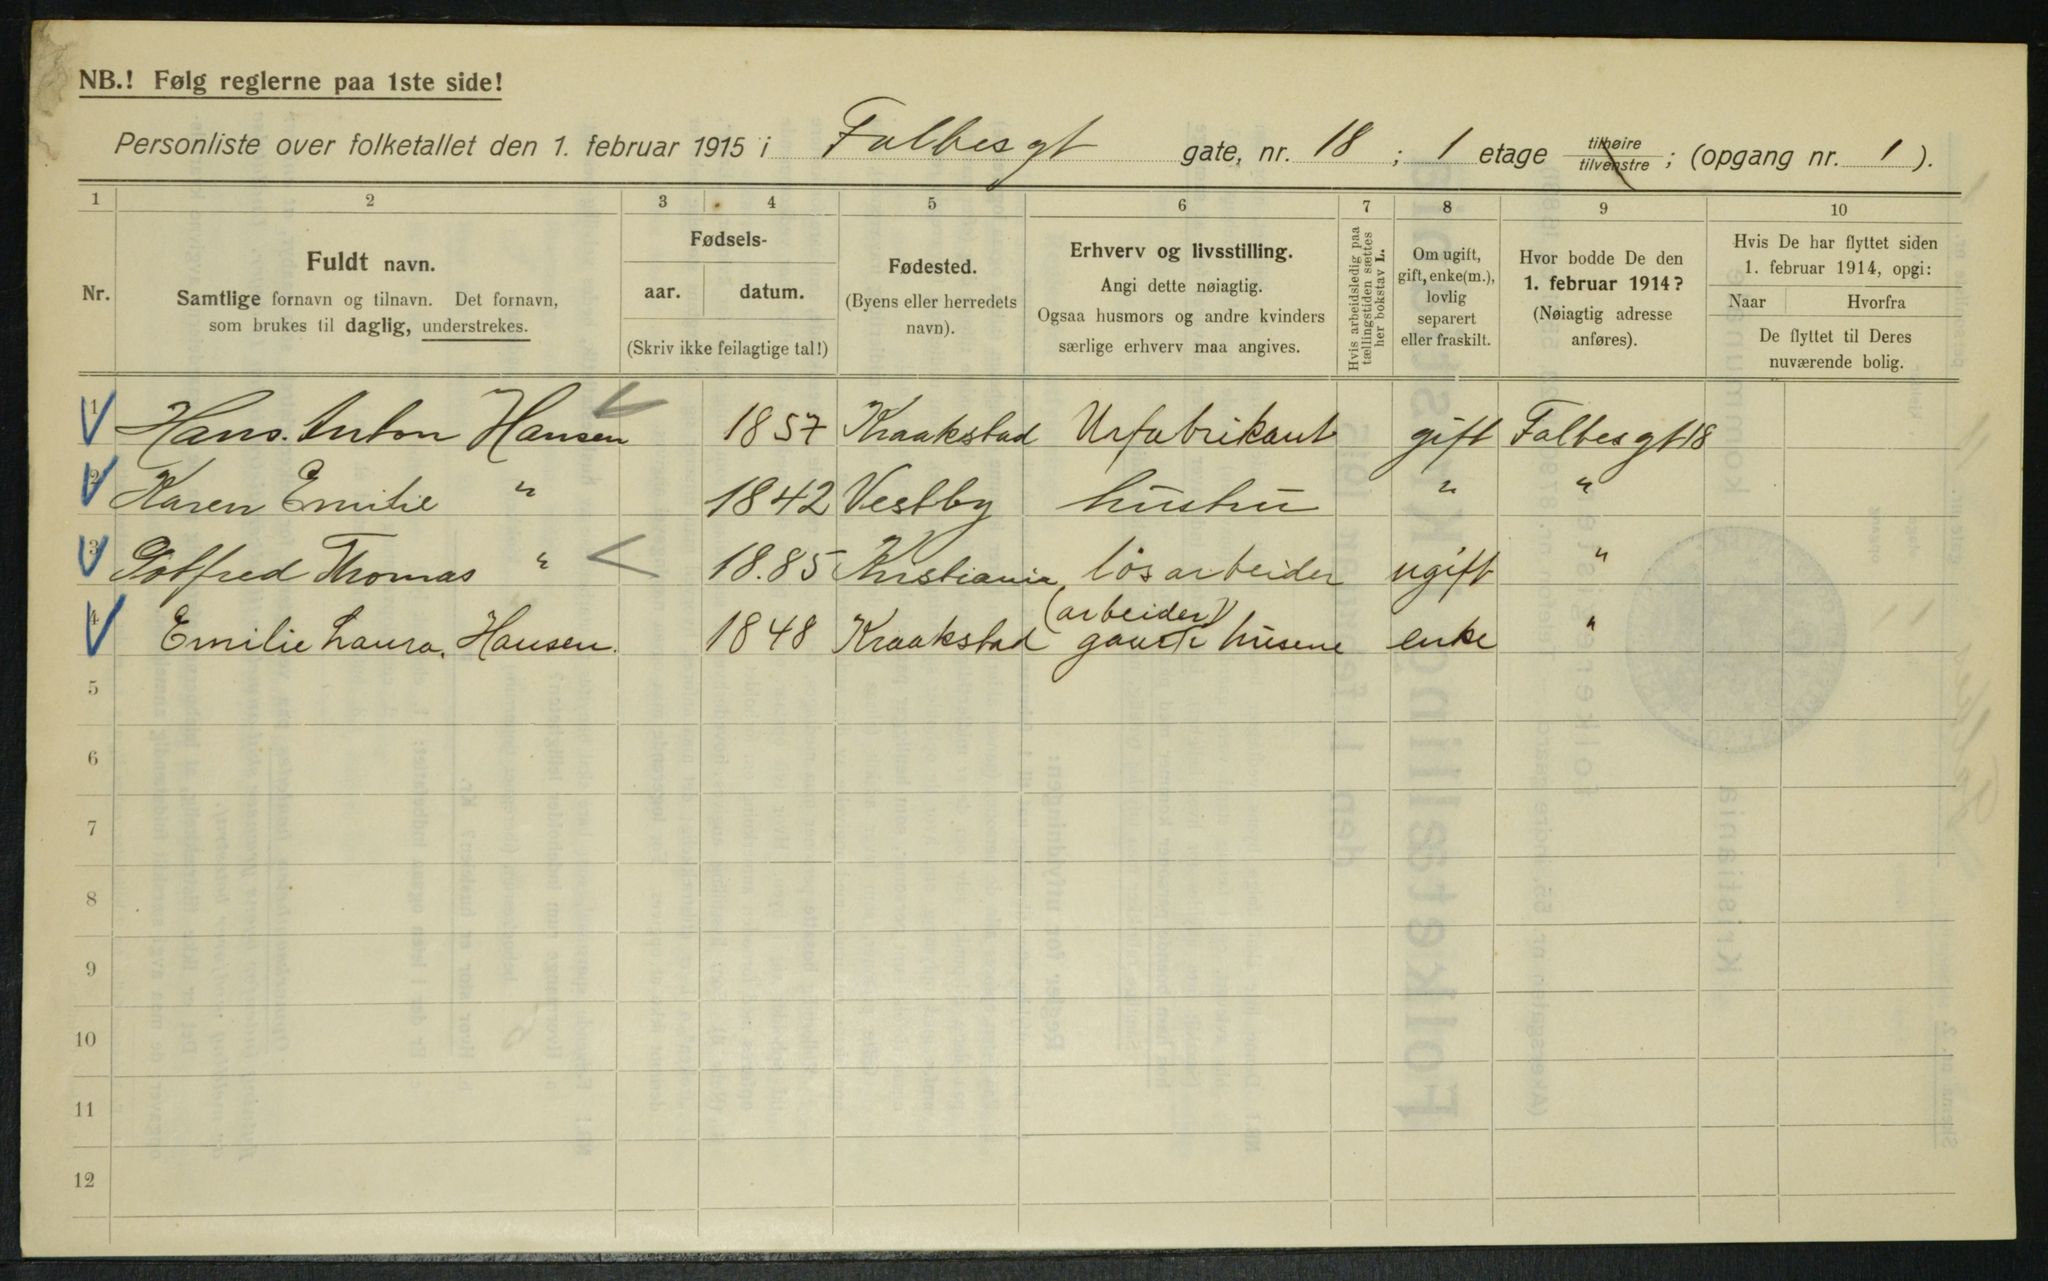 NB.! Følg reglerne paa 1ste side!
Personliste over folketallet den 1. februar 1915 i Falbes gt gate, nr. 18 ; 1 etage tilhøire tilvenstre ; (opgang nr. 1 ).
1 2 3 4 5 6 7 8 9 10
Nr.
Fuldt navn.
Samtlige fornavn og tilnavn. Det fornavn,
som brukes til daglig, understrekes.
Fødsels-
aar. datum.
(Skriv ikke feilagtige tal!)
Fødested.
(Byens eller herredets
navn).
Erhverv og livsstilling.
Angi dette nøiagtig.
Ogsaa husmors og andre kvinders
særlige erhverv maa angives.
Hvis arbeidsledig paa
tællingstiden sættes
her bokstav L.
Om ugift,
gift, enke(m.),
lovlig
separert
eller fraskilt.
Hvor bodde De den
1. februar 1914?
(Nøiagtig adresse
anføres).
Hvis De har flyttet siden
1. februar 1914, opgi:
Naar Hvorfra
De flyttet til Deres
nuværende bolig.
1 Hans. Anton Hansen 1857 Kraakstad Urfabrikant gift Falbes gt 18
2 Karen Emilie " 1842 Vestby hustru " "
3 Gotfred Thomas " 18.85 Kristiania løsarbeider ugift "
(arbeider)
4 Emilie Laura. Hansen. 1848 Kraakstad husene enke "
5
6
7
8
9
10
11
12